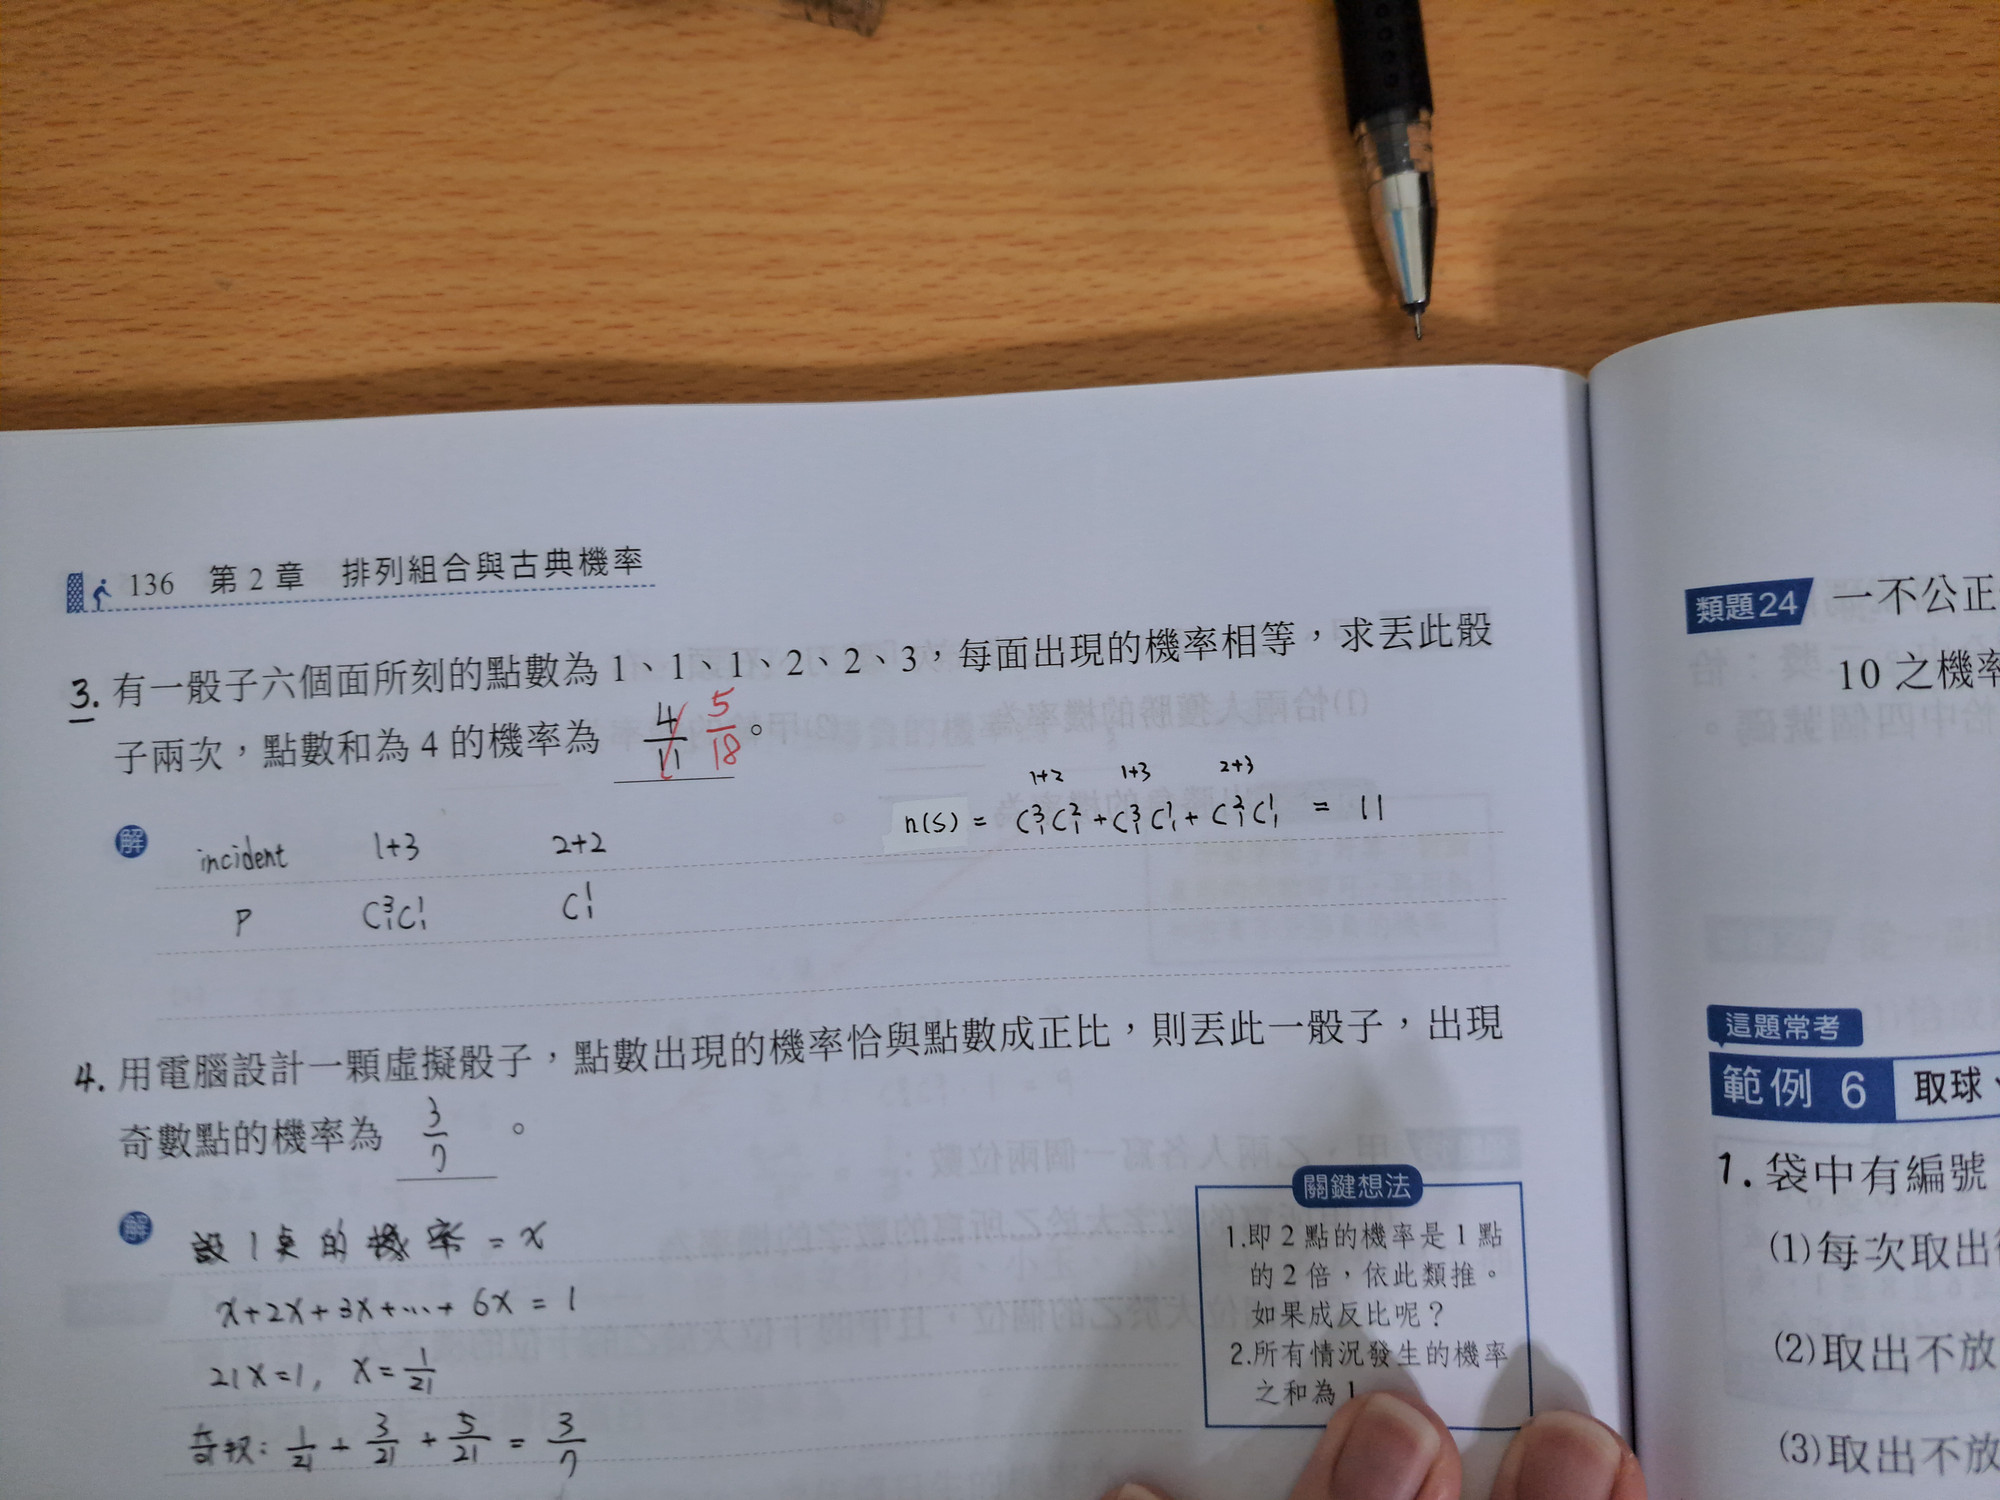 136 第2章 排列組合與古典機率
3. 有一骰子六個面所刻的點數為1、1、1、2、2、3，每面出現的機率相等，求丟此骰
子兩次，點數和為4的機率為 4/11 5/18 。
1+2 1+3 2+3
n(S) = C³₁C²₁+C³₁C¹₁+C²₁C¹₁ = 11
解 incident 1+3 2+2
P C³₁C¹₁ C¹₁
4. 用電腦設計一顆虛擬骰子，點數出現的機率恰與點數成正比，則丟此一骰子，出現
奇數點的機率為 3/7 。
解 設1點的機率=x
x+2x+3x+…+6x=1
21x=1, x=1/21
奇数: 1/21+3/21+5/21=3/7
關鍵想法
1.即2點的機率是1點
的2倍，依此類推。
如果成反比呢？
2.所有情況發生的機率
之和為1
類題24 一不公正
10之機率
這題常考
範例 6 取球、
1. 袋中有編號
(1)每次取出
(2)取出不放
(3)取出不放